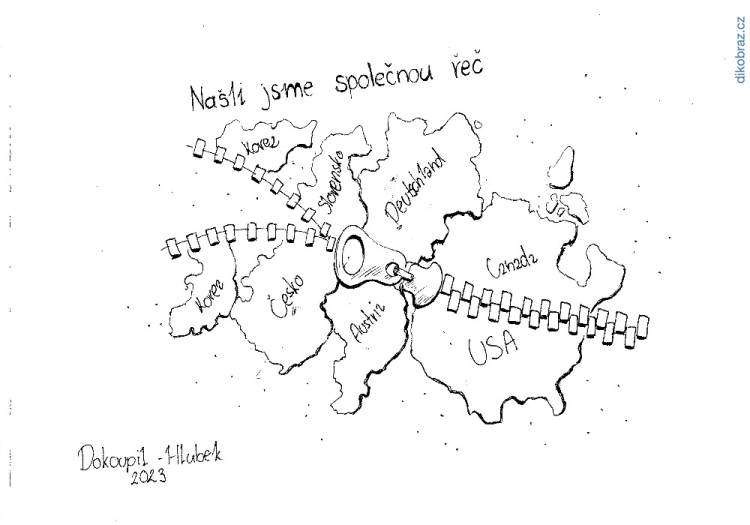 dikobraz.cz
Našli jsme společnou řeč
Korea
Slovensko
Deutschland
Canada
Korea
Česko
Austria
USA
Dokoupil - Hlubek
2023